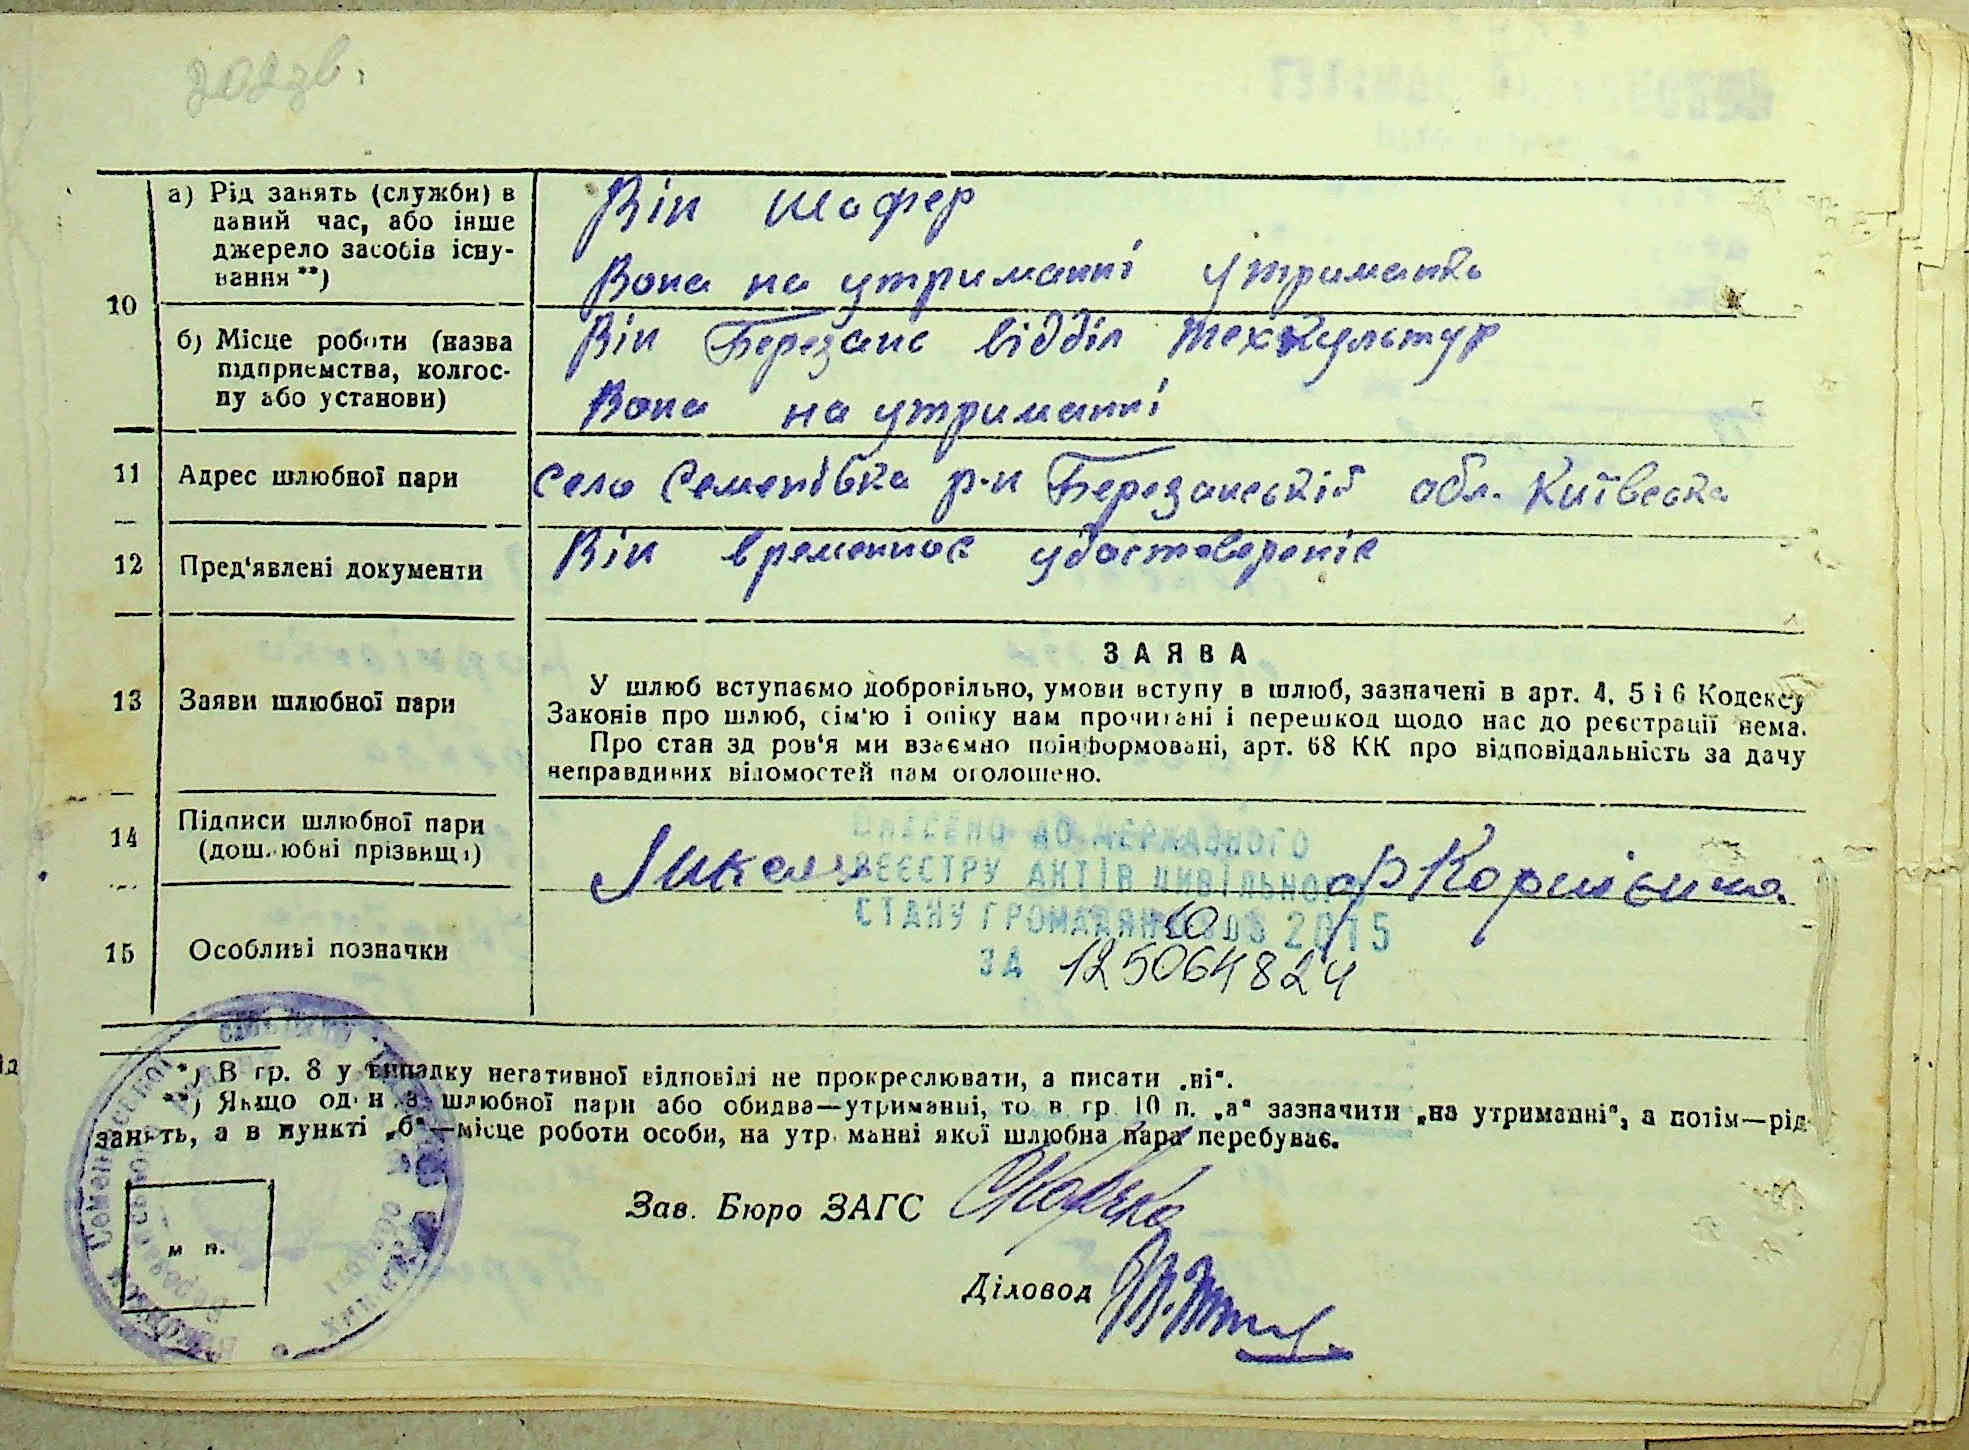 202 зв.
10
а) Рід занять (служби) в
даний час, або інше
джерело засобів існу-
вання **)
Він шофер
Вона на утриманні утриманка
б) Місце роботи (назва
підприємства, колгос-
пу або установи)
Він Березанс відділ техкультур
Вона на утриманні
11 Адрес шлюбної пари
село Семенівка р-н Березанській обл. Київська
12 Пред'явлені документи
Він временное удостоверение
13 Заяви шлюбної пари
ЗАЯВА
У шлюб вступаємо добровільно, умови вступу в шлюб, зазначені в арт. 4, 5 і 6 Кодексу
Законів про шлюб, сім'ю і опіку нам прочитані і перешкод щодо нас до реєстрації нема.
Про стан здоров'я ми взаємно поінформовані, арт. 68 КК про відповідальність за дачу
неправдивих відомостей нам оголошено.
14 Підписи шлюбної пари
(дошлюбні прізвищ)
Коршієнко
ВНЕСЕНО ДО ДЕРЖАВНОГО
РЕЄСТРУ АКТІВ ЦИВІЛЬНОГО
СТАНУ ГРОМАДЯН 2015
ЗА 125064824
15 Особливі позначки
*) В гр. 8 у випадку негативної відповіді не прокреслювати, а писати „ні“.
**) Якщо один з шлюбної пари або обидва—утриманні, то в гр. 10 п. „а“ зазначити „на утриманні“, а потім—рід
занять, а в пункті „б“—місце роботи особи, на утриманні якої шлюбна пара перебуває.
м п.
Зав. Бюро ЗАГС
Діловод